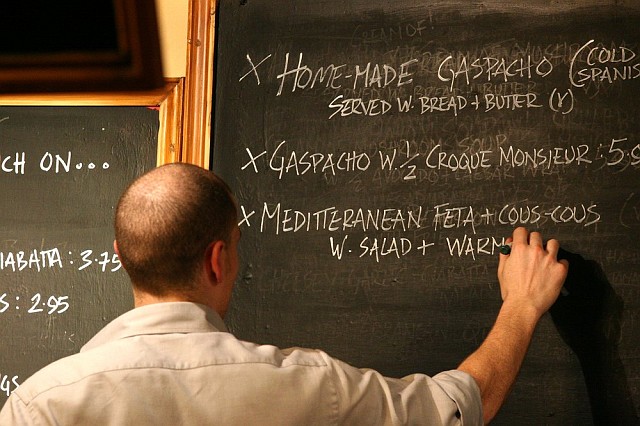 CH ON...
IABATTA: 3.75
S: 2.95
GS
X HOME-MADE GASPACHO (COLD
SPANIS
SERVED W. BREAD + BUTTER (V)
X GASPACHO W. 1/2 CROQUE MONSIEUR: 5.9
X MEDITTERANEAN FETA + COUS-COUS
W. SALAD + WARM